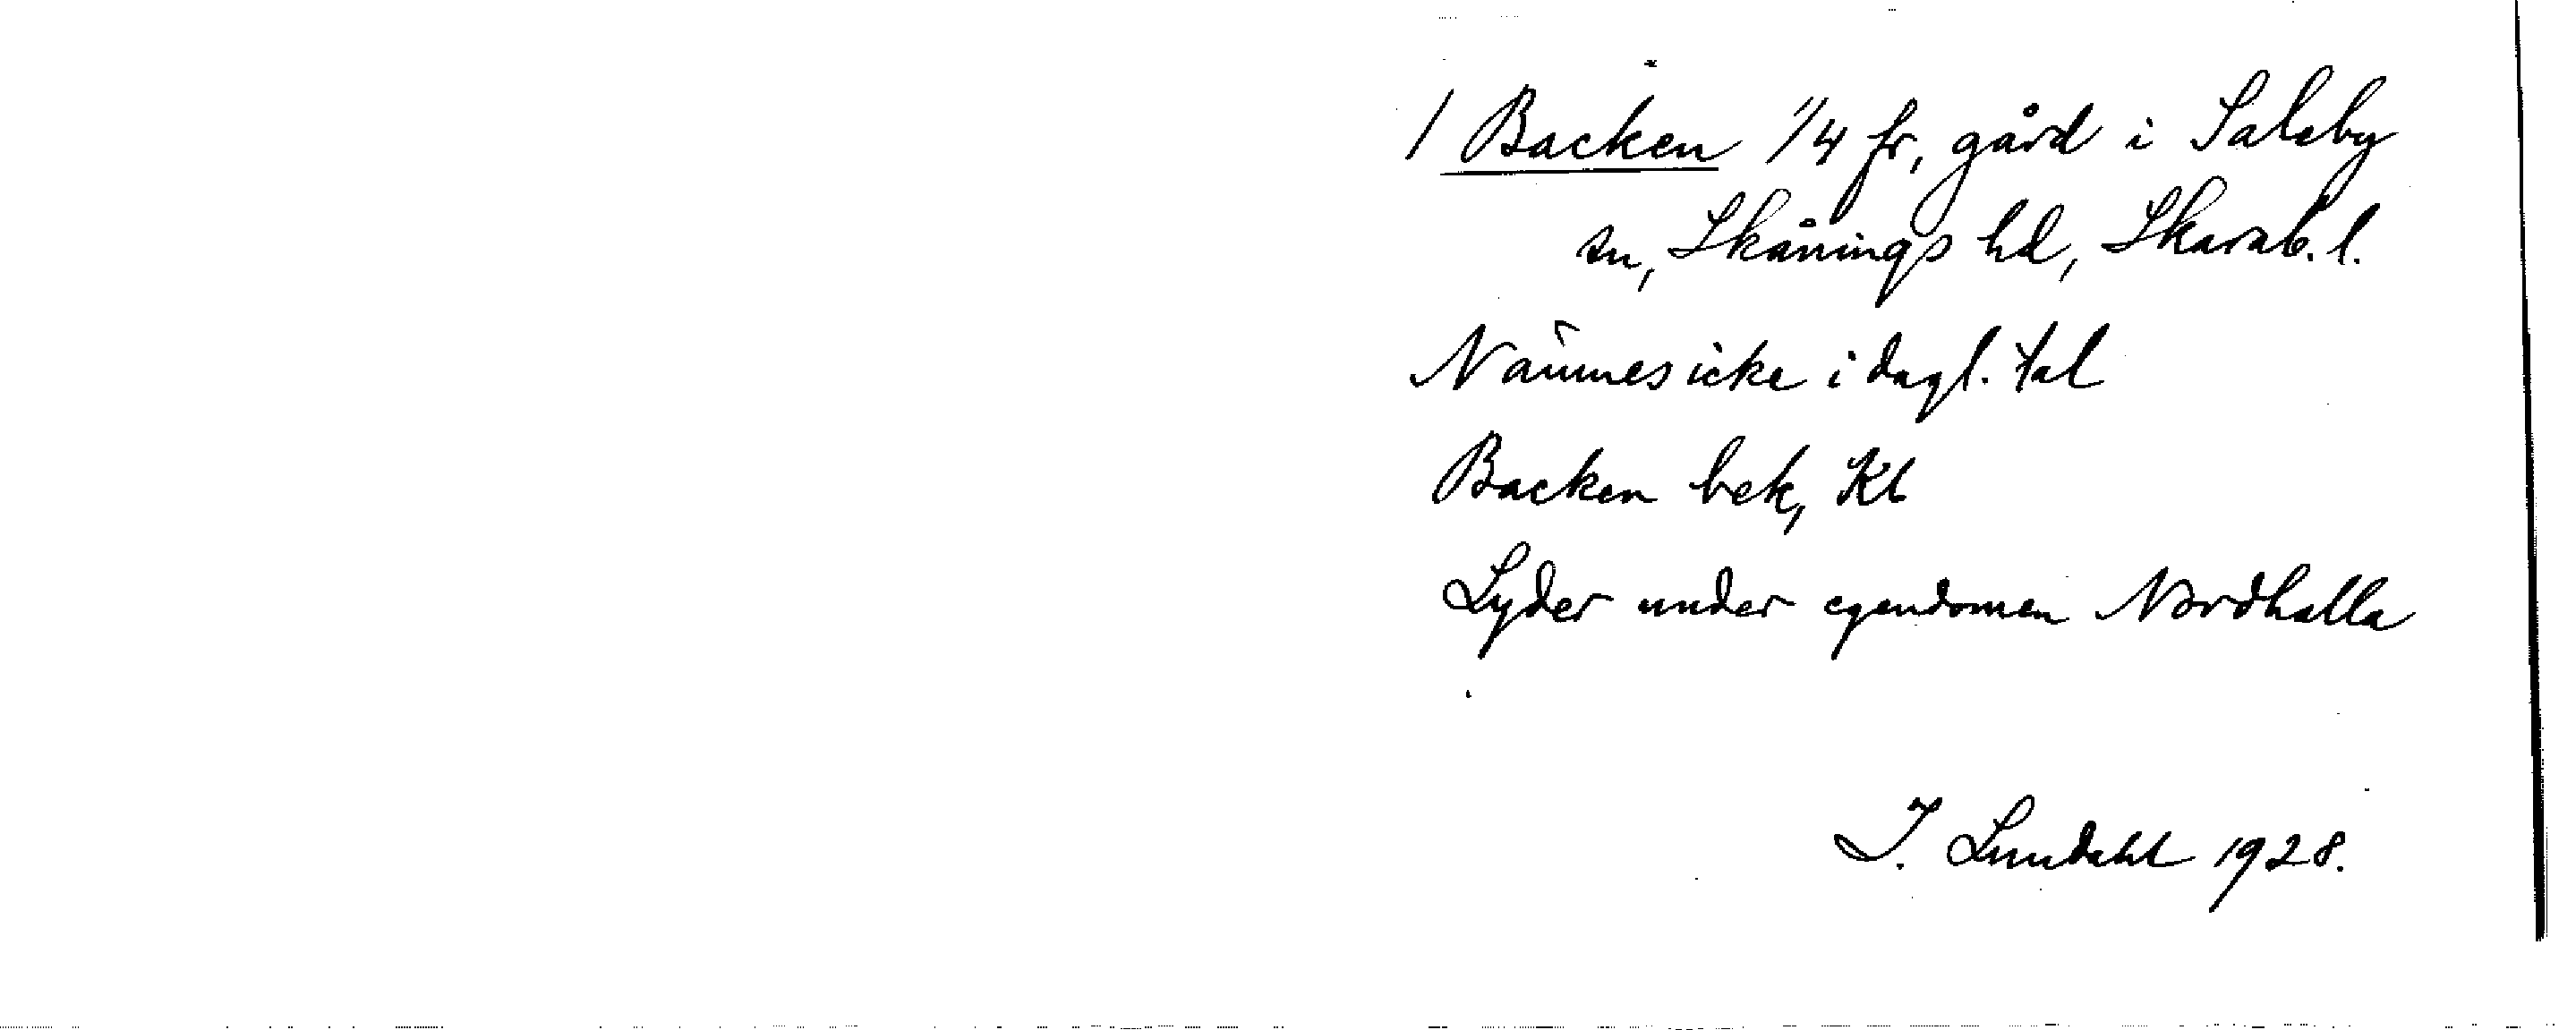 / Backen 1/4 fr, gård i Saleby
sn, Skånings hd, Skarab. l.
Nämnes icke i dagl. tal
Backen bek, Kb
Lyder under egendomen Nordhalla
I. Lundahl 1928.